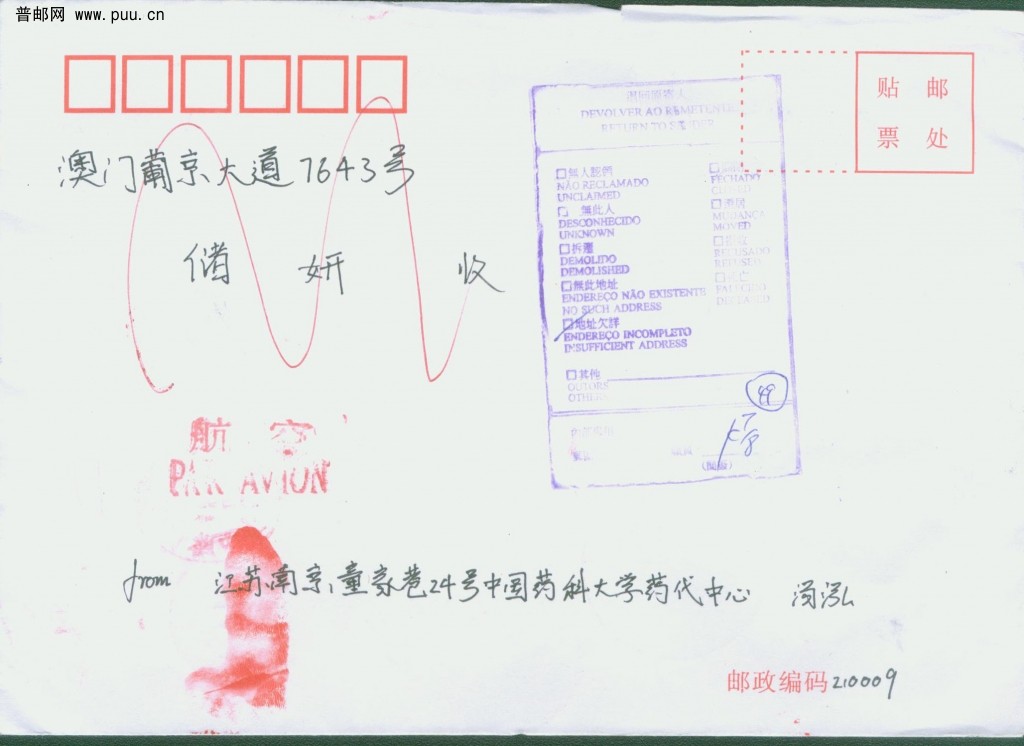 普邮网 www.puu.cn
贴 邮
票 处
澳门葡京大道7643号
储 妍 收
退回原寄人
DEVOLVER AO REMETENTE
RETURN TO SENDER
無人認領
NÃO RECLAMADO
UNCLAIMED
無此人
DESCONHECIDO
UNKNOWN
拆遷
DEMOLIDO
DEMOLISHED
無此地址
ENDEREÇO NÃO EXISTENTE
NO SUCH ADDRESS
地址欠詳
ENDEREÇO INCOMPLETO
INSUFFICIENT ADDRESS
其他
OUTROS
OTHERS
FECHADO
CLOSED
MUDANÇA
MOVED
RECUSADO
REFUSED
FALECIDO
49
航 空
PAR AVION
from 江苏,南京,童家巷24号中国药科大学药代中心
邮政编码210009